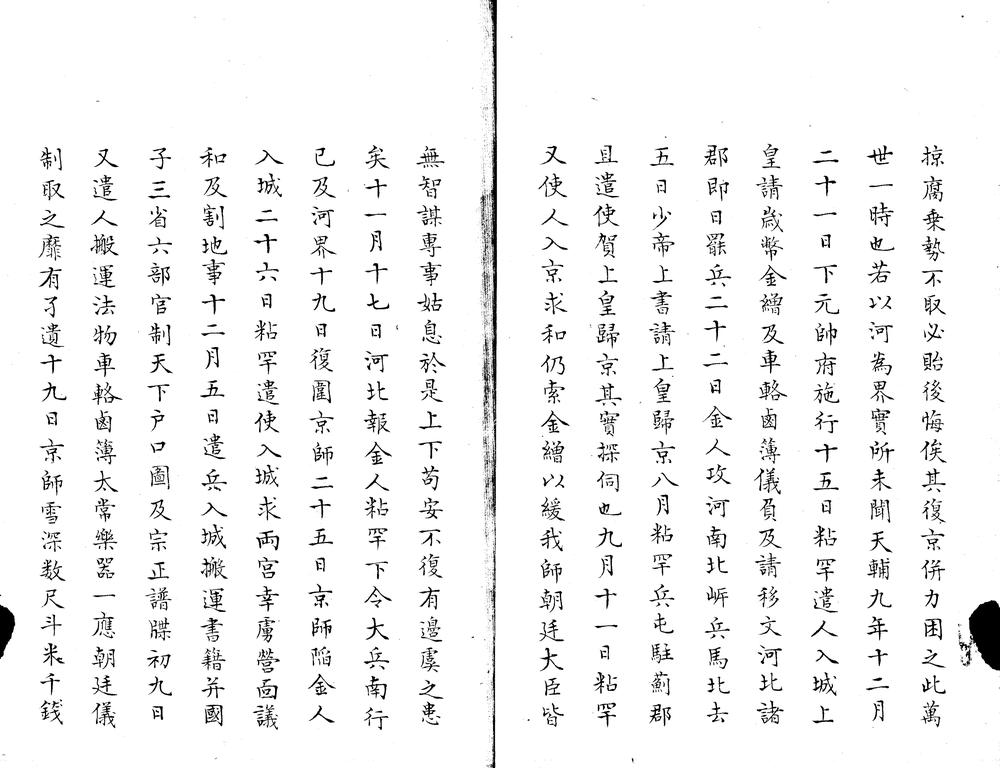 掠腐乗勢不取必貽後悔俟其復京併力困之此萬
世一時也若以河為界實所未聞天輔九年十二月
二十一日下元帥府施行十五日粘罕遣人入城上
皇請歳幣金繒及車輅鹵簿儀負及請移文河北諸
郡即日罷兵二十二日金人攻河南北岍兵馬北去
五日少帝上書請上皇歸京八月粘罕兵屯駐薊郡
且遣使賀上皇歸京其實探伺也九月十一日粘罕
又使人入京求和仍索金繒以緩我師朝廷大臣皆
無智謀專事姑息於是上下苟安不復有邊虞之患
矣十一月十七日河北報金人粘罕下令大兵南行
已及河界十九日復圍京師二十五日京師陷金人
入城二十六日粘罕遣使入城求兩宮幸虜營面議
和及割地事十二月五日遣兵入城搬運書籍并國
子三省六部官制天下户口圖及宗正譜牒初九日
又遣人搬運法物車輅鹵簿太常樂器一應朝廷儀
制取之靡有孑遺十九日京師雪深数尺斗米千錢